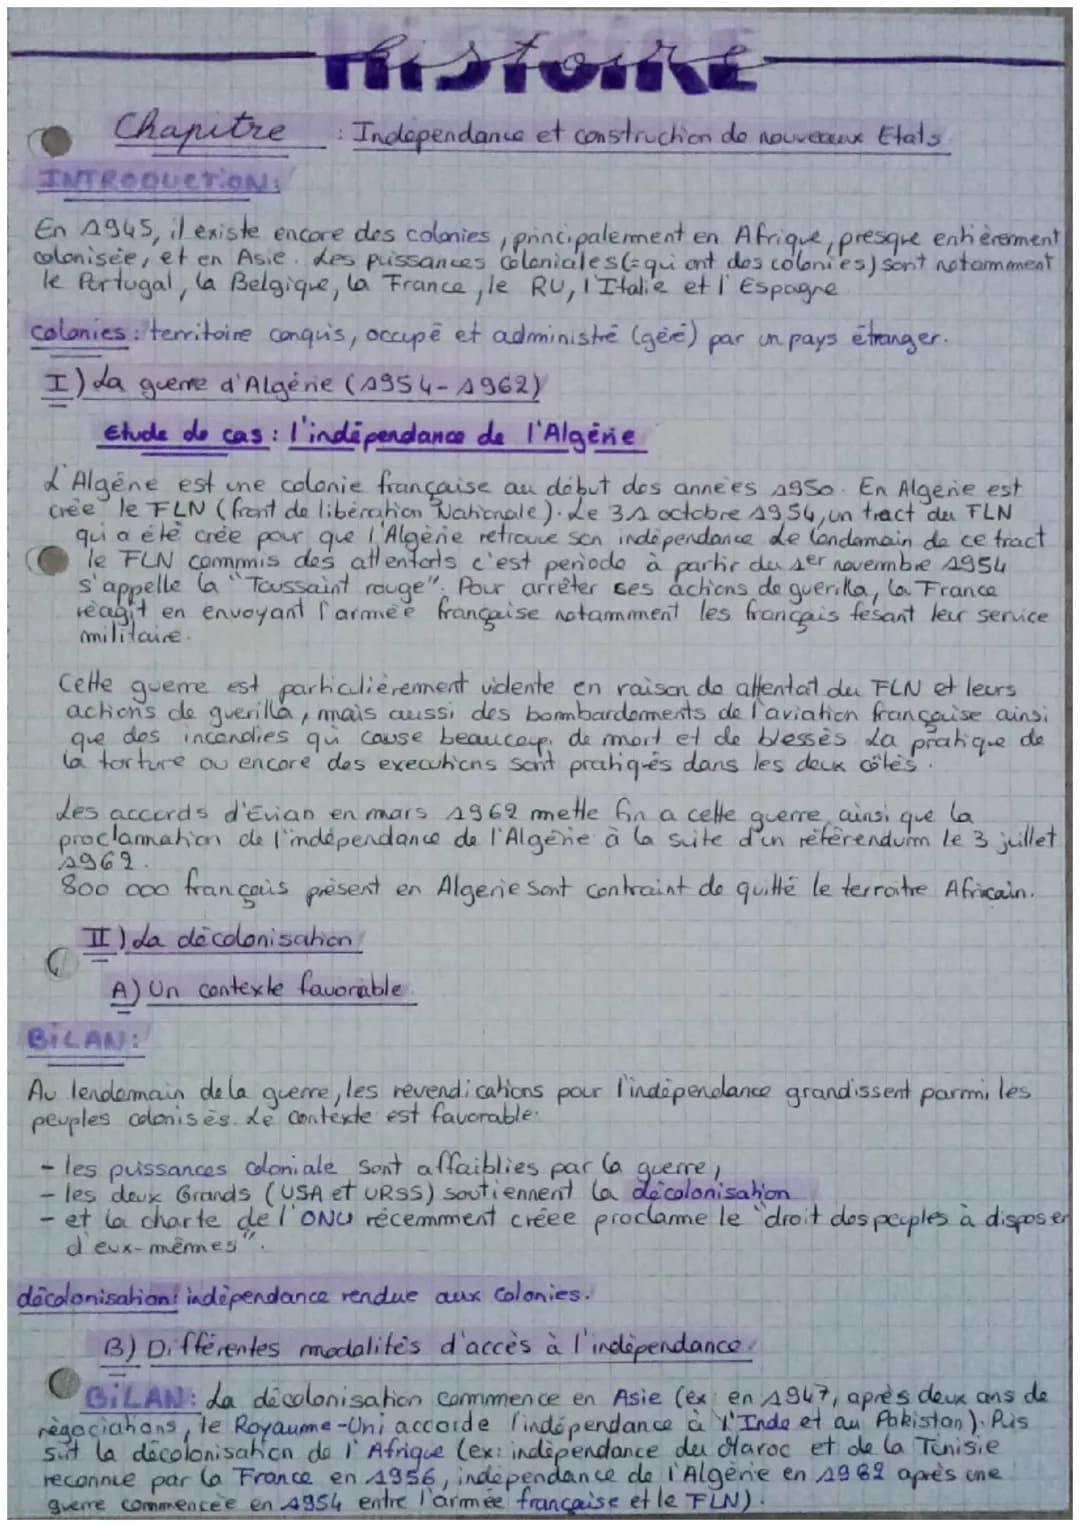 HISTOIRE
histoire
Chapitre : Indépendance et construction de nouveaux Etats.
INTRODUCTION:
En 1945, il existe encore des colonies, principalement en Afrique, presque entièrement
colonisée, et en Asie. Les puissances coloniales (= qui ont des colonies) sont notamment
le Portugal, la Belgique, la France, le RU, l'Italie et l'Espagne
colonies: territoire conquis, occupé et administré (géré) par un pays étranger.
I) La guerre d'Algérie (1954-1962)
Etude de cas: l'indépendance de l'Algérie
L'Algérie est une colonie française au début des années 1950. En Algérie est
crée le FLN (front de libération Nationale). Le 31 octobre 1954, un tract du FLN
qui a été crée pour que l'Algérie retrouve son indépendance Le landemain de ce tract
le FLN commmis des attentats c'est période à partir du 1er novembre 1954
s'appelle la "Toussaint rouge". Pour arrêter ses actions de guerilla, la France
réagit en envoyant l'armée française notamment les français fesant leur service
militaire.
Cette guerre est particulièrement vidente en raison de attentat du FLN et leurs
actions de guerilla, mais aussi des bombardements de l'aviation française ainsi
que des incendies qui cause beaucoup de mort et de blessés La pratique de
la torture ou encore des executions sont pratiqués dans les deux côtés.
Les accords d'Evian en mars 1962 mette fin a cette guerre, ainsi que la
proclamation de l'indépendance de l'Algérie à la suite d'un référendum le 3 juillet
1962.
800 000 français présent en Algerie sont contraint de quitté le terroitre Africain.
II) La décolonisation
A) Un contexte favorable
BILAN:
Au lendemain de la guerre, les revendications pour l'indépendance grandissent parmi les
peuples colonisés. Le contexte est favorable:
- les puissances coloniale sont affaiblies par la guerre,
- les deux Grands (USA et URSS) soutiennent la décolonisation
- et la charte de l'ONU récemment créée proclame le "droit des peuples à disposer
d'eux-mêmes".
décolonisation: indépendance rendue aux colonies.
B) Différentes modalités d'accès à l'indépendance.
BILAN: La décolonisation commence en Asie (ex: en 1947, après deux ans de
négociations, le Royaume-Uni accorde l'indépendance à l'Inde et au Pakistan). Puis
suit la décolonisation de l'Afrique (ex: indépendance du Maroc et de la Tunisie
reconnue par la France en 1956, indépendance de l'Algérie en 1962 après une
guerre commencée en 1954 entre l'armée française et le FLN).